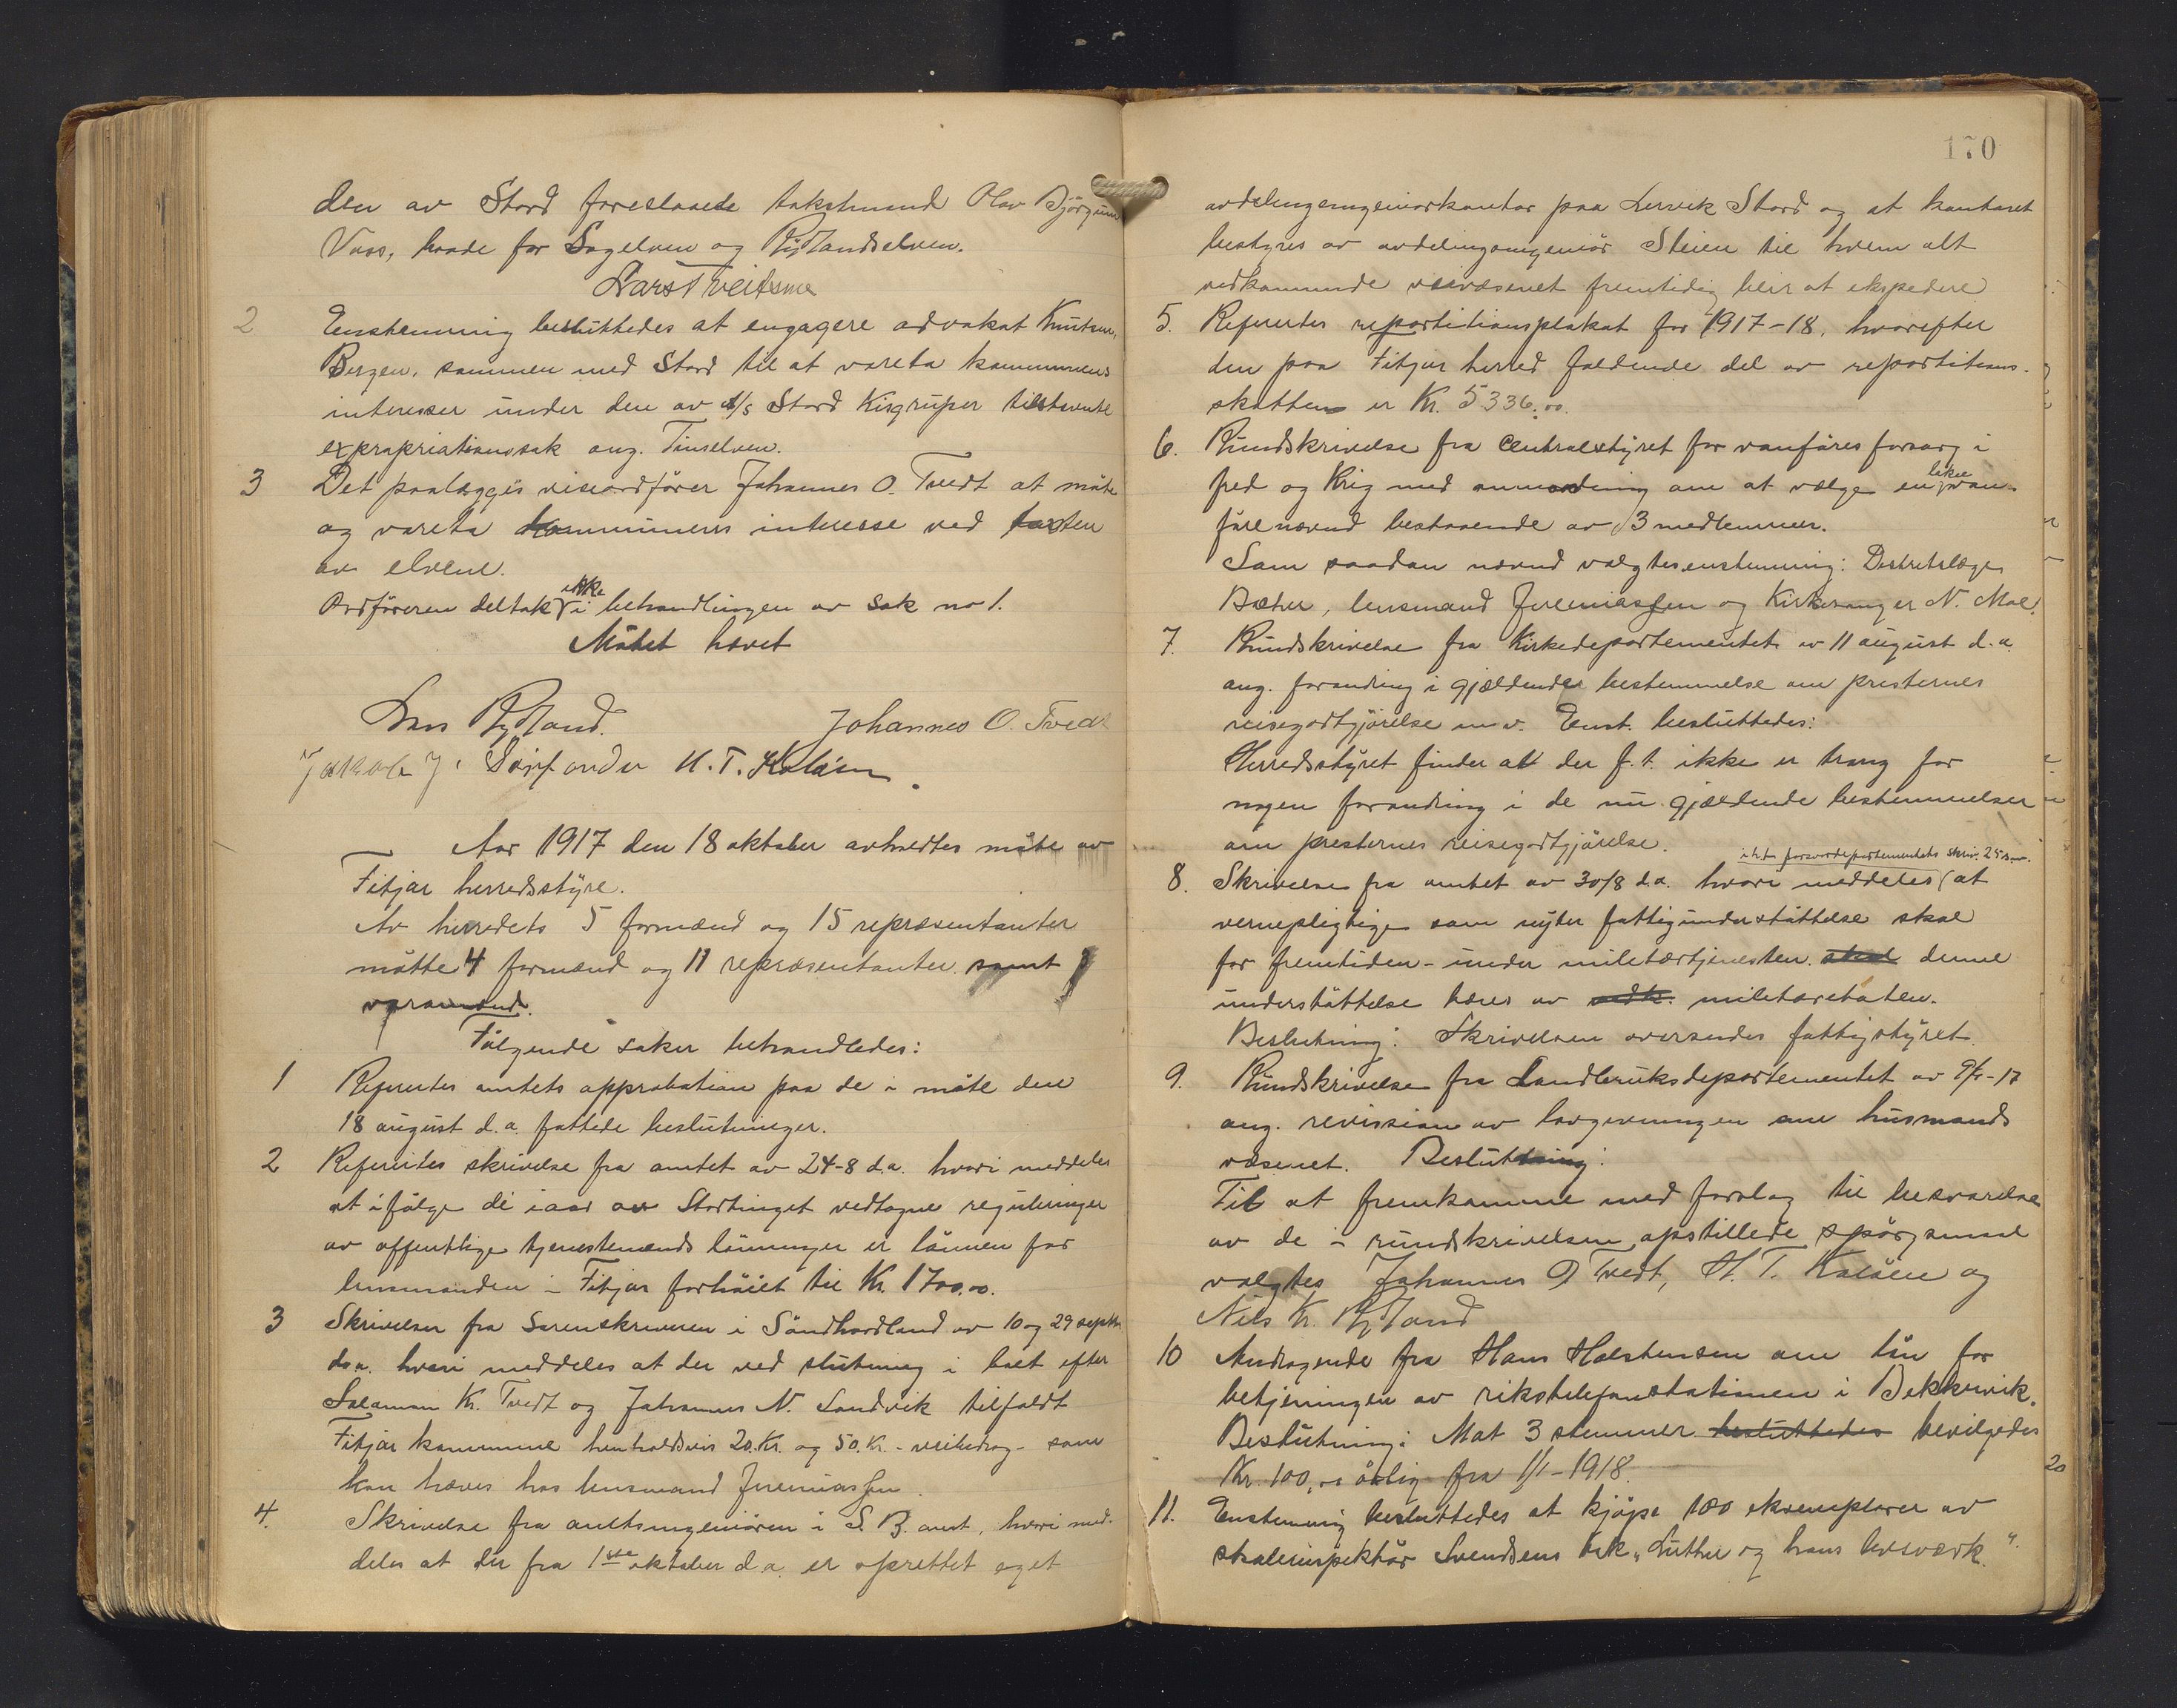 den av Stord foreslaaede takstmand Olav Bjørgum
Voss, baade for Sagelven og Rydlandselven.
Lars Tveitsme
2 Enstemmig besluttedes at engagere advokat Knutsen,
Bergen, sammen med Stord til at vareta kommunens
interesser under den av A/S Stord Kisgruper tilstevnte
expropriationssak ang. Tinselven.
3 Det paalægges viseordfører Johannes O. Tvedt at møte
og vareta kommunens interesse ved taxten
av elvene.
Ordføreren deltok ikke i behandlingen av sak no 1.
Møtet hævet
Lars Rydland. Johannes O. Tvedt
Jakob J. H. T. Koløen.
Aar 1917 den 18 oktober avholdtes møte av
Fitjar herredsstyre.
Av herredets 5 formænd og 15 repræsentanter
møtte 4 formænd og 11 repræsentanter samt
varamænd.
Følgende saker behandledes:
1 Refertes amtets approbation paa de i møte den
18 august d.a. fattede beslutninger.
2 Refertes skrivelse fra amtet av 24-8 d.a. hvori meddeles
at ifølge de iaar av Stortinget vedtagne reguleringer
av offentlige tjenestemænds lønninger er lønnen for
lensmanden i Fitjar forhøiet til Kr. 1700,00.
3 Skrivelser fra Sorenskriveren i Søndhordland av 10 og 29 septbr
d.a. hvori meddeles at der ved slutning i boet efter
Salamon Kr. Tvedt og Johannes N. Sandvik tilfaldt
Fitjar kommune henholdsvis 20. Kr. og 50. Kr. - veibidrag - som
kan hæves hos lensmand Jeremiassen.
4. Skrivelse fra amtsingeniøren i S. B. amt, hvori med-
deles at der fra 1ste oktober d.a. er oprettet eget
170
avdelingsingeniørkontor paa Lervik Stord og at kontoret
bestyres av avdelingsingeniør Steien til hvem alt
vedkommende veivæsenet fremtidig blir at ekspedere
5. Refertes repartitionsplakat for 1917-18, hvorefter
den paa Fitjar herred faldende del av repartitions-
skatten er Kr. 5336,00.
6. Rundskrivelse fra Centralstyret for vanføres forsorg i
fred og Krig med anmodning om at vælge en lokal van-
føre nævnd bestaaende av 3 medlemmer.
Som saadan nævnd valgtes enstemmig: Distriktslæge
Bætzer, lensmand Jeremiassen og Kirkesanger N. Moe.
7. Rundskrivelse fra Kirkedepartementet av 11 august d.a.
ang. forandring i gjældende bestemmelse om presternes
reisegodtgjørelse m.v. Enst. besluttedes:
Herredsstyret finder at der f.t. ikke er trang for
nogen forandring i de nu gjældende bestemmelser
om presternes reisegodtgjørelse.
8. Skrivelse fra amtet av 30/8 d.a. hvori meddeles i h.t. forsvarsdepartementets skriv. 25 s.m. at
vernepligtige som nyter fattigunderstøttelse skal
for fremtiden - under militærtjenesten skal denne
understøttelse bæres av militæretaten.
Beslutning: Skrivelsen oversendes fattigstyret.
9. Rundskrivelse fra Landbruksdepartementet av 9/8-17
ang. revission av lovgivningen om husmands
væsenet. Beslutning:
Til at fremkomme med forslag til besvarelse
av de i rundskrivelsen opstillede spørgsmaal
valgtes Johannes O Tvedt, H. T. Koløen og
Nils K. Rydland
10 Andragende fra Hans Halstensen om løn for
betjeningen av rikstelefonstationen i Bekkervik.
Beslutning: Mot 3 stemmer besluttedes bevilgedes
Kr. 100,00 årlig fra 1/1-1918.
11. Enstemmig besluttedes at kjøpe 100 eksemplarer av
skoleinspektør Svendsens bok „Luther og hans livsverk."
20